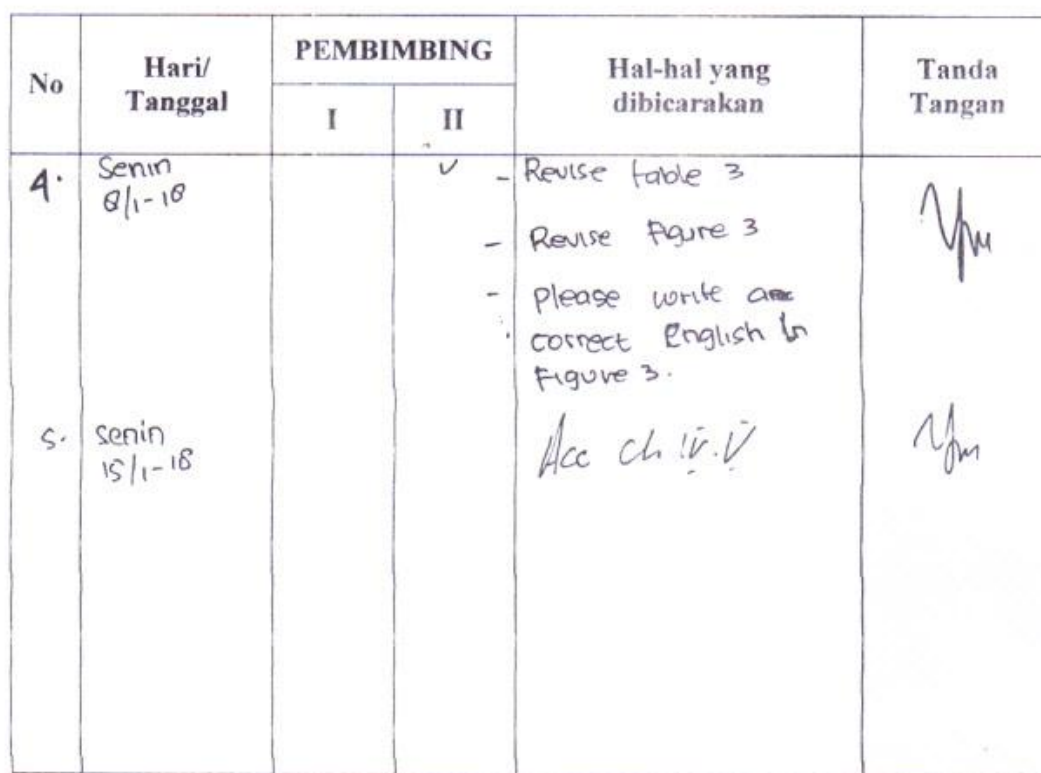 No
Hari/
Tanggal
PEMBIMBING
I
II
Hal-hal yang
dibicarakan
Tanda
Tangan
4. Senin
8/1-18
- Revise table 3
- Revise Figure 3
- Please write
correct English in
Figure 3.
5. Senin
15/1-18
Acc ch IV. V